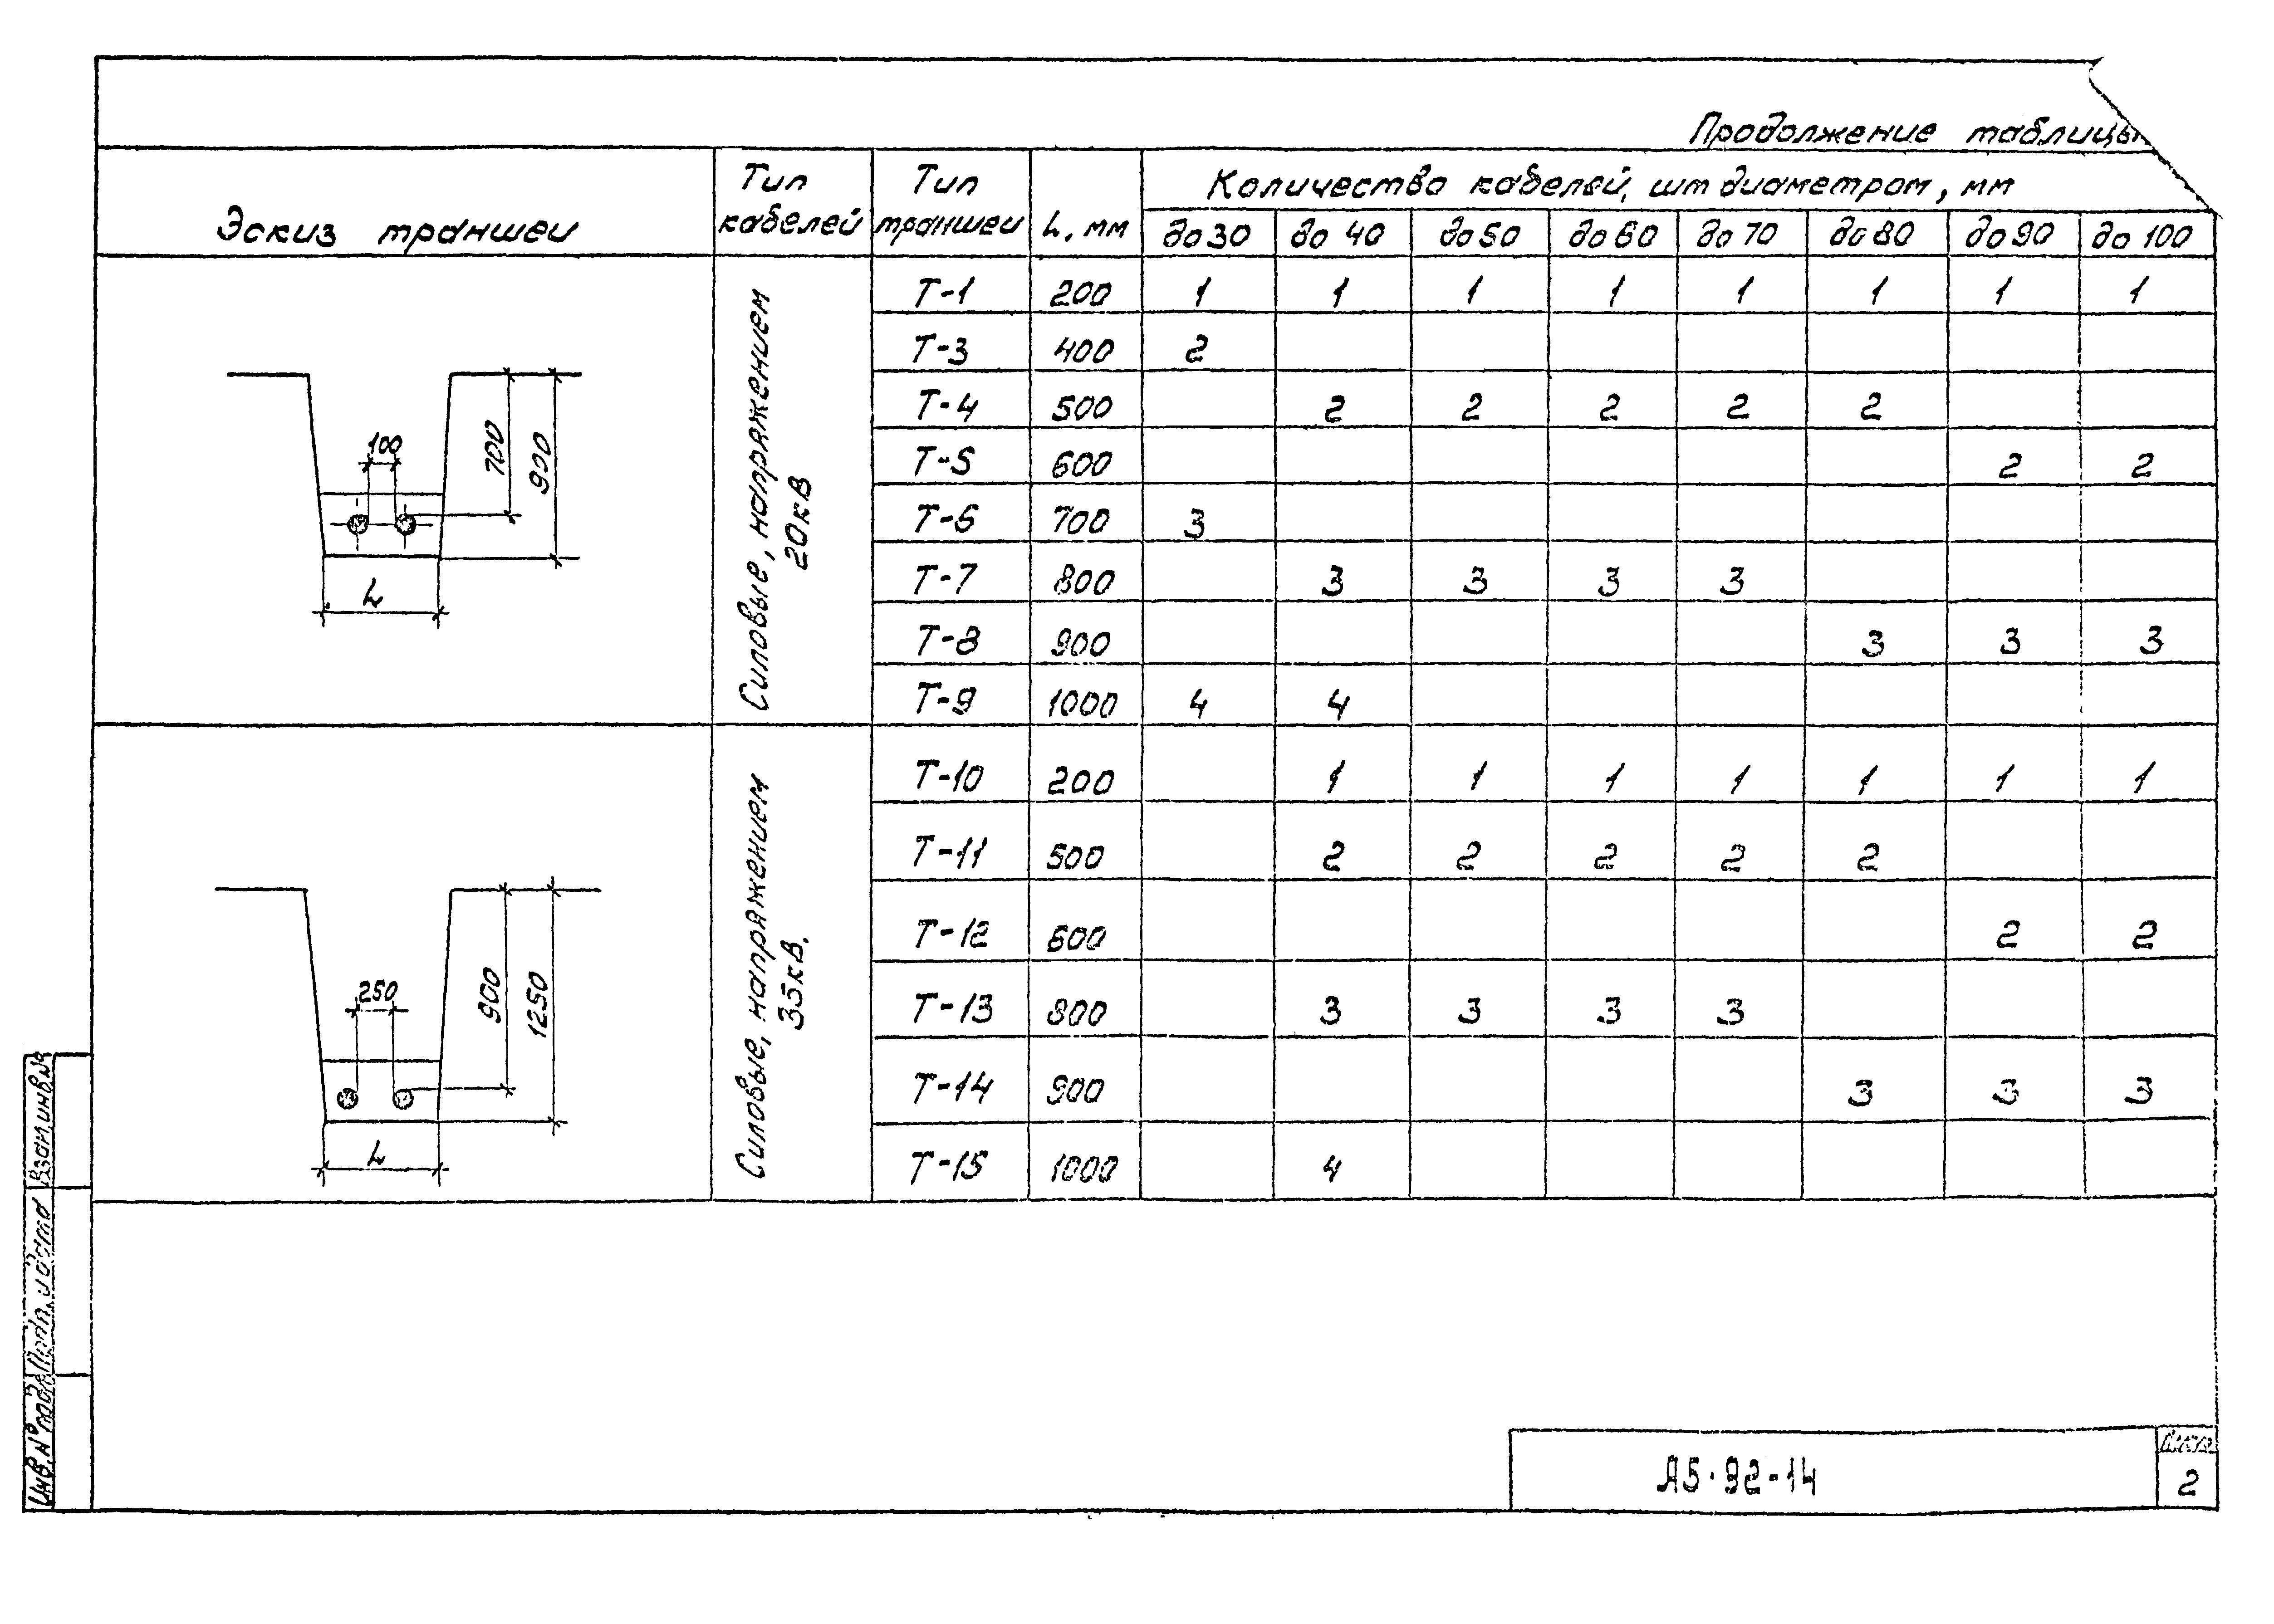 Продолжение таблицы
Эскиз траншеи
Тип кабелей
Тип траншеи
L, мм
Количество кабелей, шт диаметром, мм
до 30 до 40 до 50 до 60 до 70 до 80 до 90 до 100
Силовые, напряжением 20кВ
100
700
900
L
Т-1 200 1 1 1 1 1 1 1 1
Т-3 400 2
Т-4 500 2 2 2 2 2
Т-5 600 2 2
Т-6 700 3
Т-7 800 3 3 3 3
Т-8 900 3 3 3
Т-9 1000 4 4
Силовые, напряжением 35кВ.
250
900
1250
L
Т-10 200 1 1 1 1 1 1 1
Т-11 500 2 2 2 2 2
Т-12 600 2 2
Т-13 800 3 3 3 3
Т-14 900 3 3 3
Т-15 1000 4
Взам.инв.№
Подп. и дата
Инв.№ подл.
А5-92-14
Лист
2